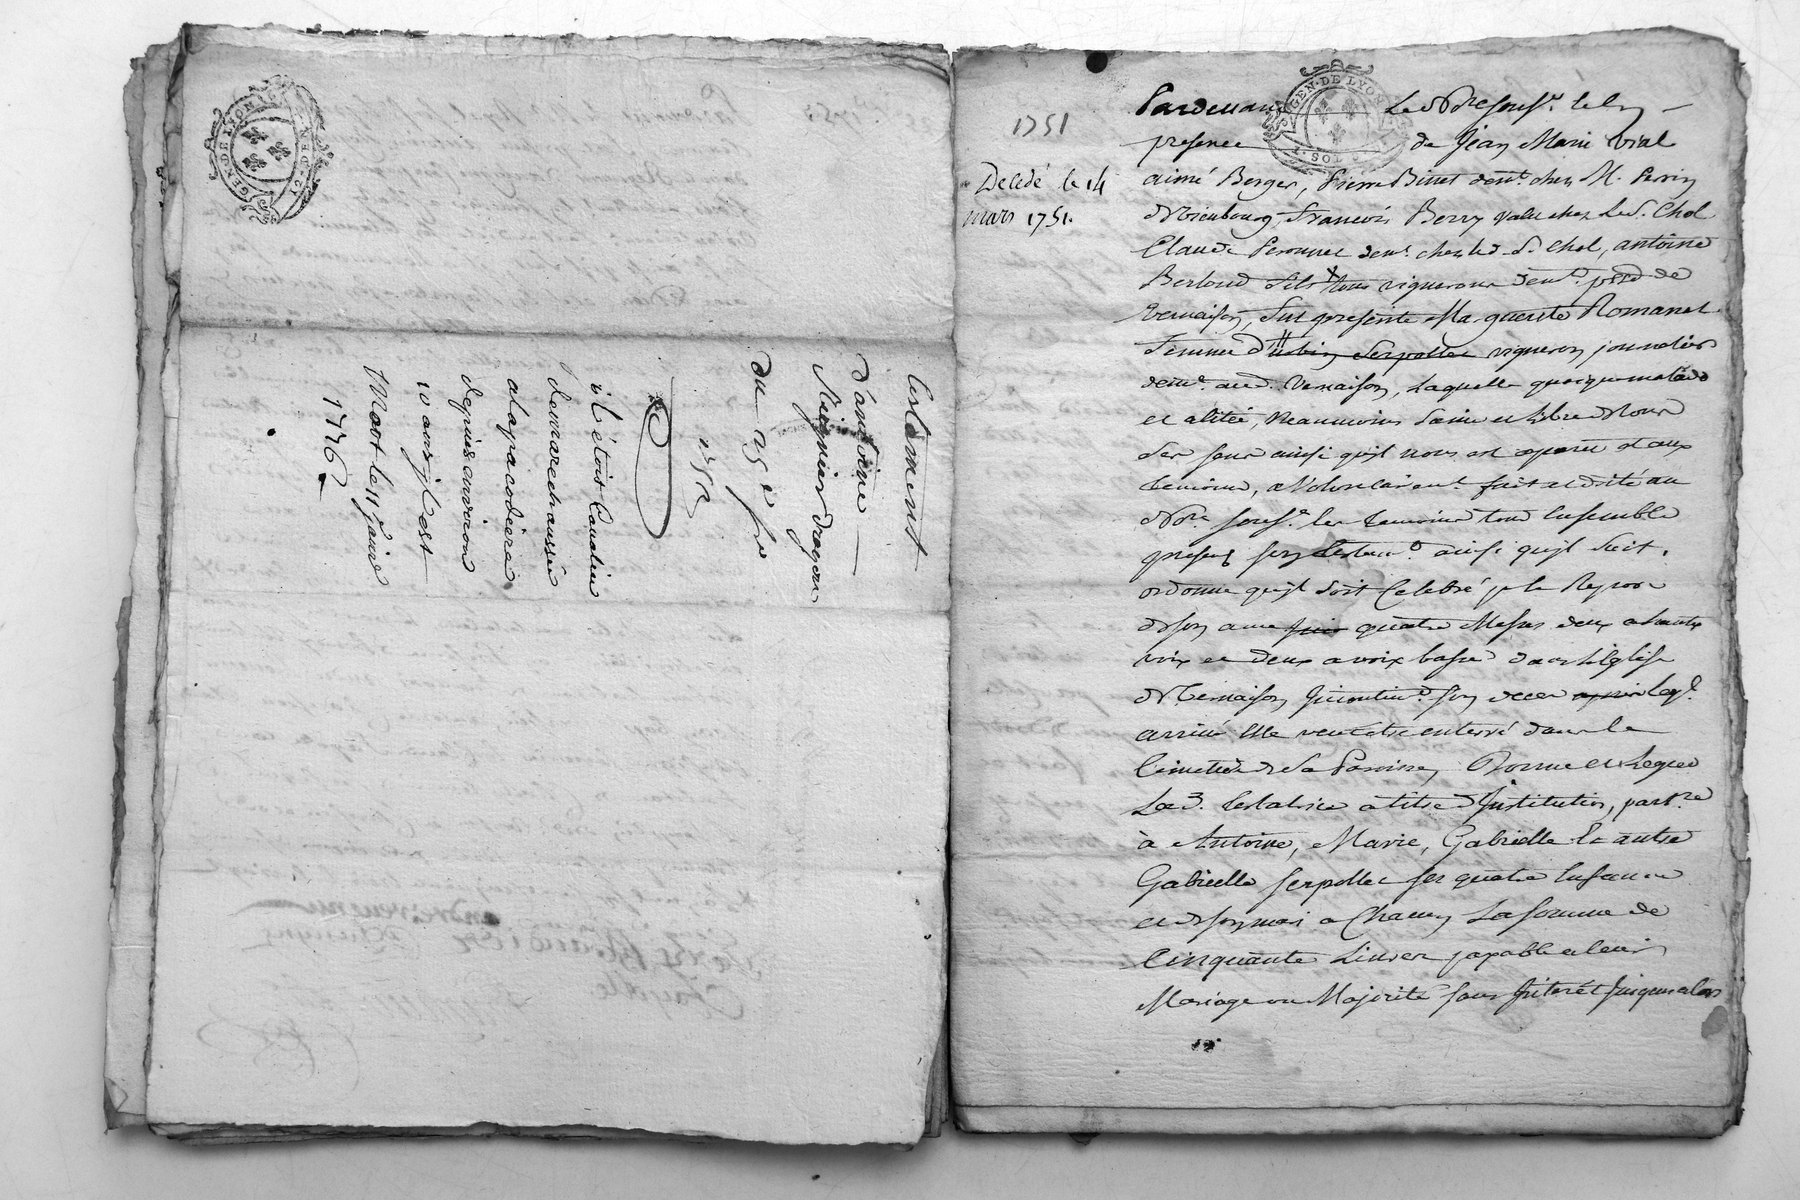 GEN. DE LYON
Testament
d'antoine
Reignier dragon
du 25e
1752
il étoit Cavalier
de marechaussée
a la pacodiere
depuis environ
10 ans, il est
Mort le 11 Janvier
1762
1751
Decedé le 14
mars 1751.
GEN. DE LYON
SOL
Pardevant Le Nore soussn.
presence de Jean Marie Vial
aimé Berger, Pierre Binet demt. chez M. Perrin
François Berry valet chez Led. S. Chol
Claude Peronnet demt. chez led. S. Chol, antoine
Berloud fils tous vignerons demt.
Vernaison, fut presente Marguerite Romanet
femme d'Urbin Serpollet vigneron journalier
demt. aud. Vernaison, Laquelle quoique malade
et alitée, Neanmoins saine et libre de tous
ses sens ainsi qu'il nous est aparu et aux
temoins, a Volontairemt. fait et dicté au
Nore soussé. les temoins tous Ensemble
presens son testamt. ainsi qu'il suit.
ordonne qu'il soit Celebré pr le Repos
de son ame quatre Messes deux a haute
voix et deux a voix basse dans L'Eglise
de Vernaison Incontint. son decez
arrivé Elle veut etre enterré dans le
Cimetiere de La Paroisse, Donne et Legue
Lad. testatrice a titre d'Institution, partre
à Antoine, Marie, Gabrielle Et autre
Gabrielle Serpollet ses quatre Enfans
et de son mari a Chacun La somme de
Cinquante Livres payable a leur
Mariage ou Majorité sans Interêt jusques alors